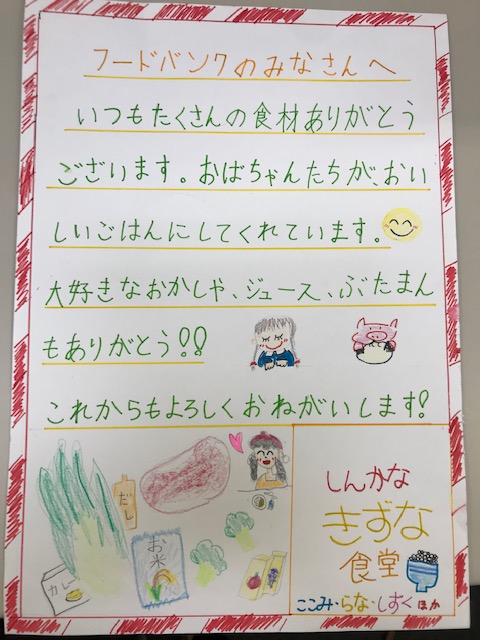 フードバンクのみなさんへ
いつもたくさんの食材ありがとう
ございます。おばちゃんたちが、おい
しいごはんにしてくれています。
大好きなおかしや、ジュース、ぶたまん
もありがとう!!
これからもよろしくおねがいします!
だし
お米
カレー
しんかな
きずな
食堂
ここみ・らな・しずく ほか